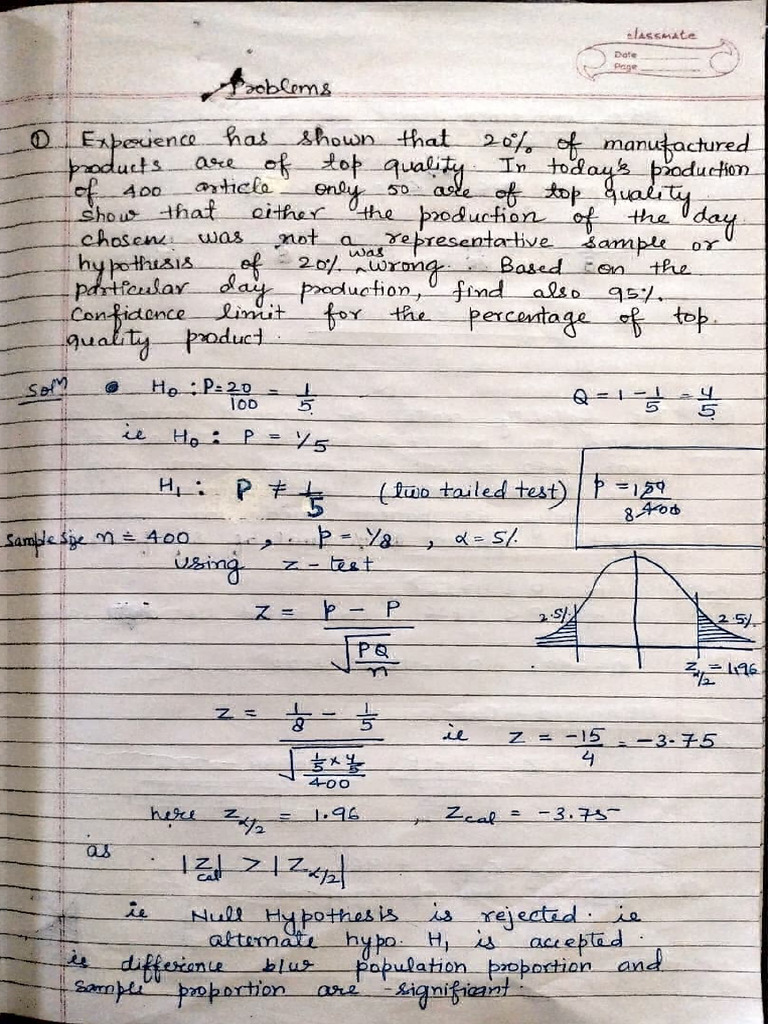 classmate
Date
Page
Problems
① Experience has shown that 20% of manufactured
products are of top quality. In today's production
of 400 article only 50 are of top quality
show that either the production of the day
chosen was not a representative sample or
hypothesis of 20% was wrong. Based on the
particular day production, find also 95%.
Confidence limit for the percentage of top
quality product.
Solⁿ H₀ : P = 20/100 = 1/5 Q = 1 - 1/5 = 4/5
ie H₀ : P = 1/5
H₁ : P ≠ 1/5 (two tailed test)
p = 50/400 1/8
Sample size n = 400 , p = 1/8 , α = 5%
using z-test
Z = p - P / √(PQ/n)
2.5% 2.5%
Z_α/2 = 1.96
Z = (1/8 - 1/5) / √((1/5 × 4/5)/400) ie Z = -15/4 = -3.75
here Z_α/2 = 1.96 , Z_cal = -3.75
as
|Z_cal| > |Z_α/2|
ie Null Hypothesis is rejected. ie
alternate hypo. H₁ is accepted.
ie difference b/w population proportion and
sample proportion are significant.